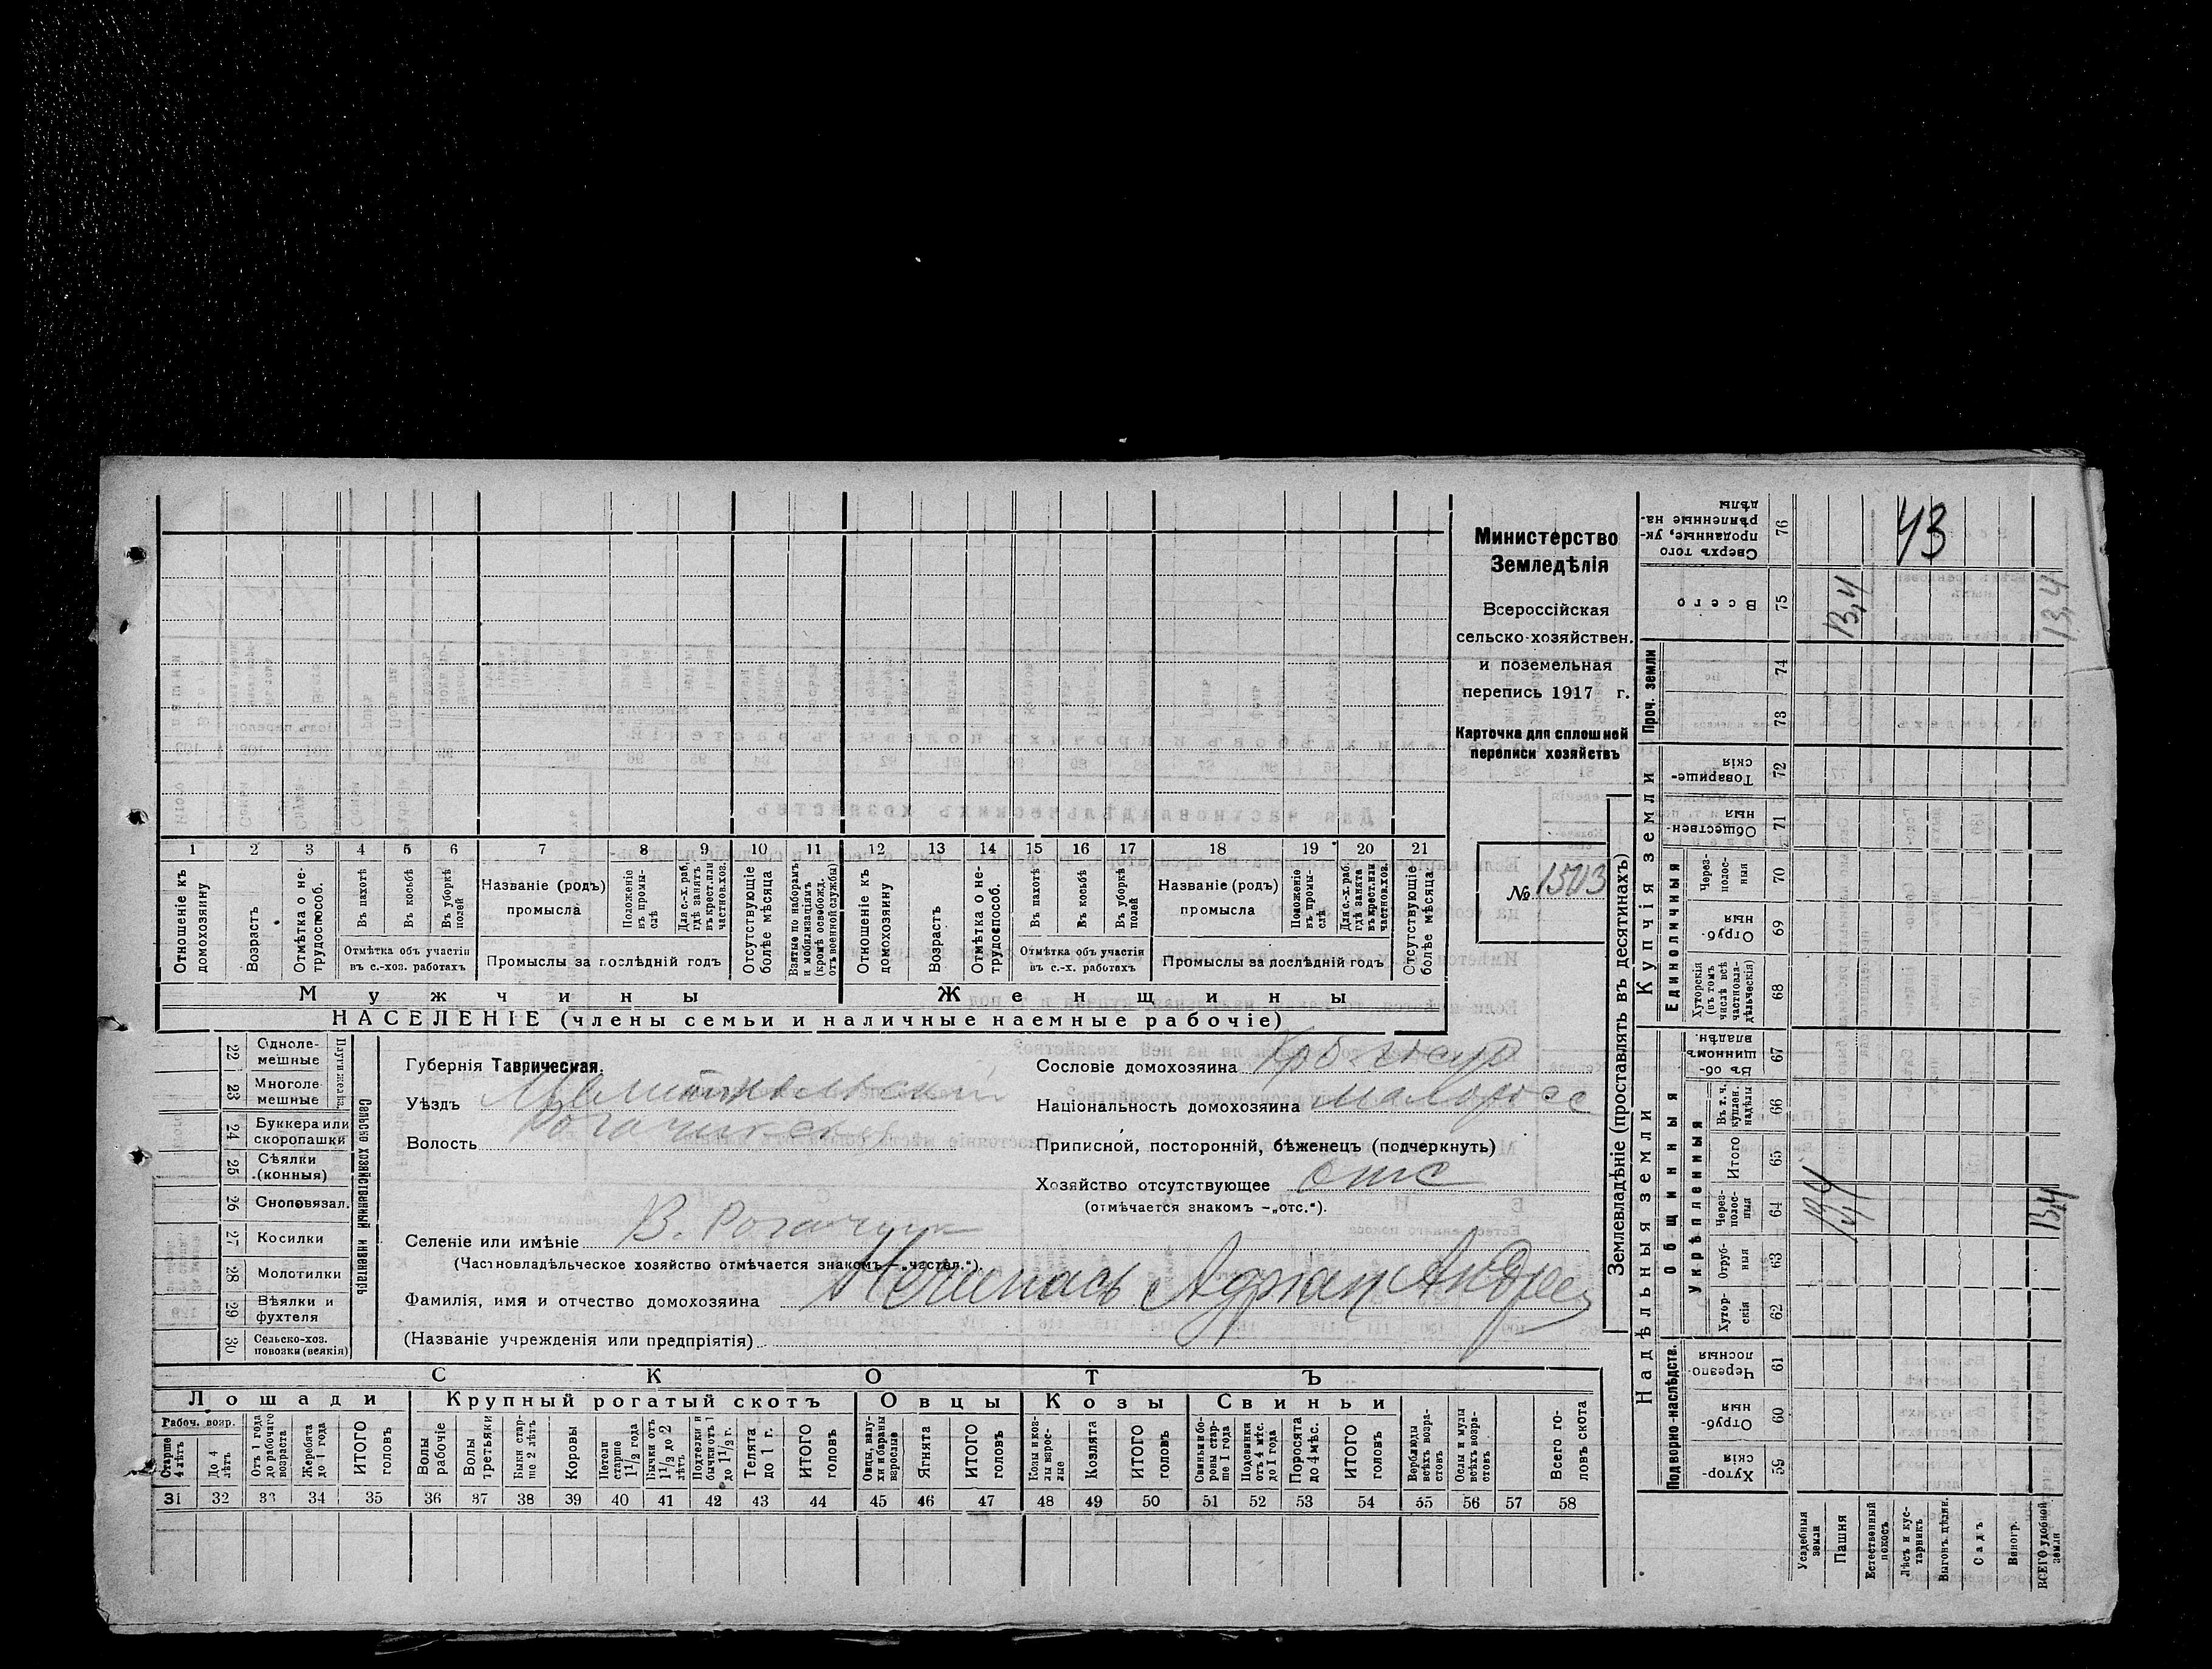 Министерство
Земледѣлія
Всероссійская
сельско-хозяйствен.
и поземельная
перепись 1917 г.
Карточка для сплошной
переписи хозяйствъ
№ 1503
1 2 3 4 5 6 7 8 9 10 11 12 13 14 15 16 17 18 19 20 21
Отношеніе къ домохозяину
Возрастъ
Отмѣтка о не-трудоспособ.
Въ пахотѣ
Въ косьбѣ
Въ уборкѣ полей
Отмѣтка объ участіи
въ с.-хоз. работахъ
Названіе (родъ)
промысла
Положеніе въ промы-слѣ
Для с.-х. раб. гдѣ занятъ въ крест. или частнов. хоз.
Промыслы за послѣдній годъ
Отсутствующіе болѣе мѣсяца
Взятые по наборамъ и мобилизаціямъ (кромѣ освобожд. отъ военной службы)
Отношеніе къ домохозяину
Возрастъ
Отмѣтка о не-трудоспособ.
Въ пахотѣ
Въ косьбѣ
Въ уборкѣ полей
Отмѣтка объ участіи
въ с.-х. работахъ
Названіе (родъ)
промысла
Положеніе въ промы-слѣ
Для с.-х. раб. гдѣ занята въ крест. или частнов. хоз.
Промыслы за послѣдній годъ
Отсутствующіе болѣе мѣсяца
Мужчины Женщины
НАСЕЛЕНІЕ (члены семьи и наличные наемные рабочіе)
22 Одноле-мешные
23 Многоле-мешные
24 Буккера или скоропашки
25 Сѣялки (конныя)
26 Сноповязал.
27 Косилки
28 Молотилки
29 Вѣялки и фухтеля
30 Сельско-хоз. повозки (всякія)
Сельско хозяйственный инвентарь
Губернія Таврическая.
Уѣздъ Мелитопольскій
Волость Рогачикская
Селеніе или имѣніе В. Рогачик
(Частновладѣльческое хозяйство отмѣчается знакомъ—„частвл.“).
Фамилія, имя и отчество домохозяина Адріан Андрее
(Названіе учрежденія или предпріятія)
Сословіе домохозяина
Національность домохозяина малоросс
Приписной, посторонній, бѣженецъ (подчеркнуть)
Хозяйство отсутствующее отс
(отмѣчается знакомъ —„отс.“).
СКОТЪ
Лошади Крупный рогатый скотъ Овцы Козы Свиньи
Рабоч. возр.
Старше 4 лѣтъ
До 4 лѣтъ
Отъ 1 года до рабочаго возраста
Жеребята до 1 года
ИТОГО головъ
Волы рабочіе
Волы третьяки
Быки стар-ше 2 лѣтъ
Коровы
Нетели старше 1½ года
Бычки отъ 1½ до 2 лѣтъ
Подтелки и бычки отъ 1 до 1½ г.
Телята до 1 г.
ИТОГО головъ
Овцы, валу-хи и бараны взрослые
Ягнята
ИТОГО головъ
Козы и коз-лы взрос-лые
Козлята
ИТОГО головъ
Свиньи и бо-ровы стар-ше 1 года
Подсвинки отъ 4 мѣс. до 1 года
Поросята до 4 мѣс.
ИТОГО головъ
Верблюды всѣхъ возра-стовъ
Ослы и мулы всѣхъ возра-стовъ
Всего го-ловъ скота
31 32 33 34 35 36 37 38 39 40 41 42 43 44 45 46 47 48 49 50 51 52 53 54 55 56 57 58
Землевладѣніе (проставлять въ десятинахъ)
Надѣльныя земли
Купчія земли
Проч. земли
Подворно-наслѣдств.
Общинныя
Укрѣпленныя
Единоличныя
Хутор-скія 59
Отруб-ныя 60
Черезпо-лосныя 61
Хутор-скія 62
Отруб-ныя 63
Через-полос-ныя 64
Итого 65
Въ т. ч. куплен. надѣлы 66
Въ об-щинномъ владѣн. 67
Хуторскія (въ томъ числѣ всѣ частновла-дѣльческія) 68
Отруб-ныя 69
Через-полос-ныя 70
Обществен-ныя 71
Товарище-скія 72
73
74
Всего 75
Сверхъ того проданные, ук-рѣпленные на-дѣлы 76
Усадебныя земли
Пашня
Естественный покосъ
Лѣсъ и кус-тарникъ
Выгонъ дѣлин.
Садъ
Виногр.
ВСЕГО удобной земли
43
13,4
13,4
13,4
13,4